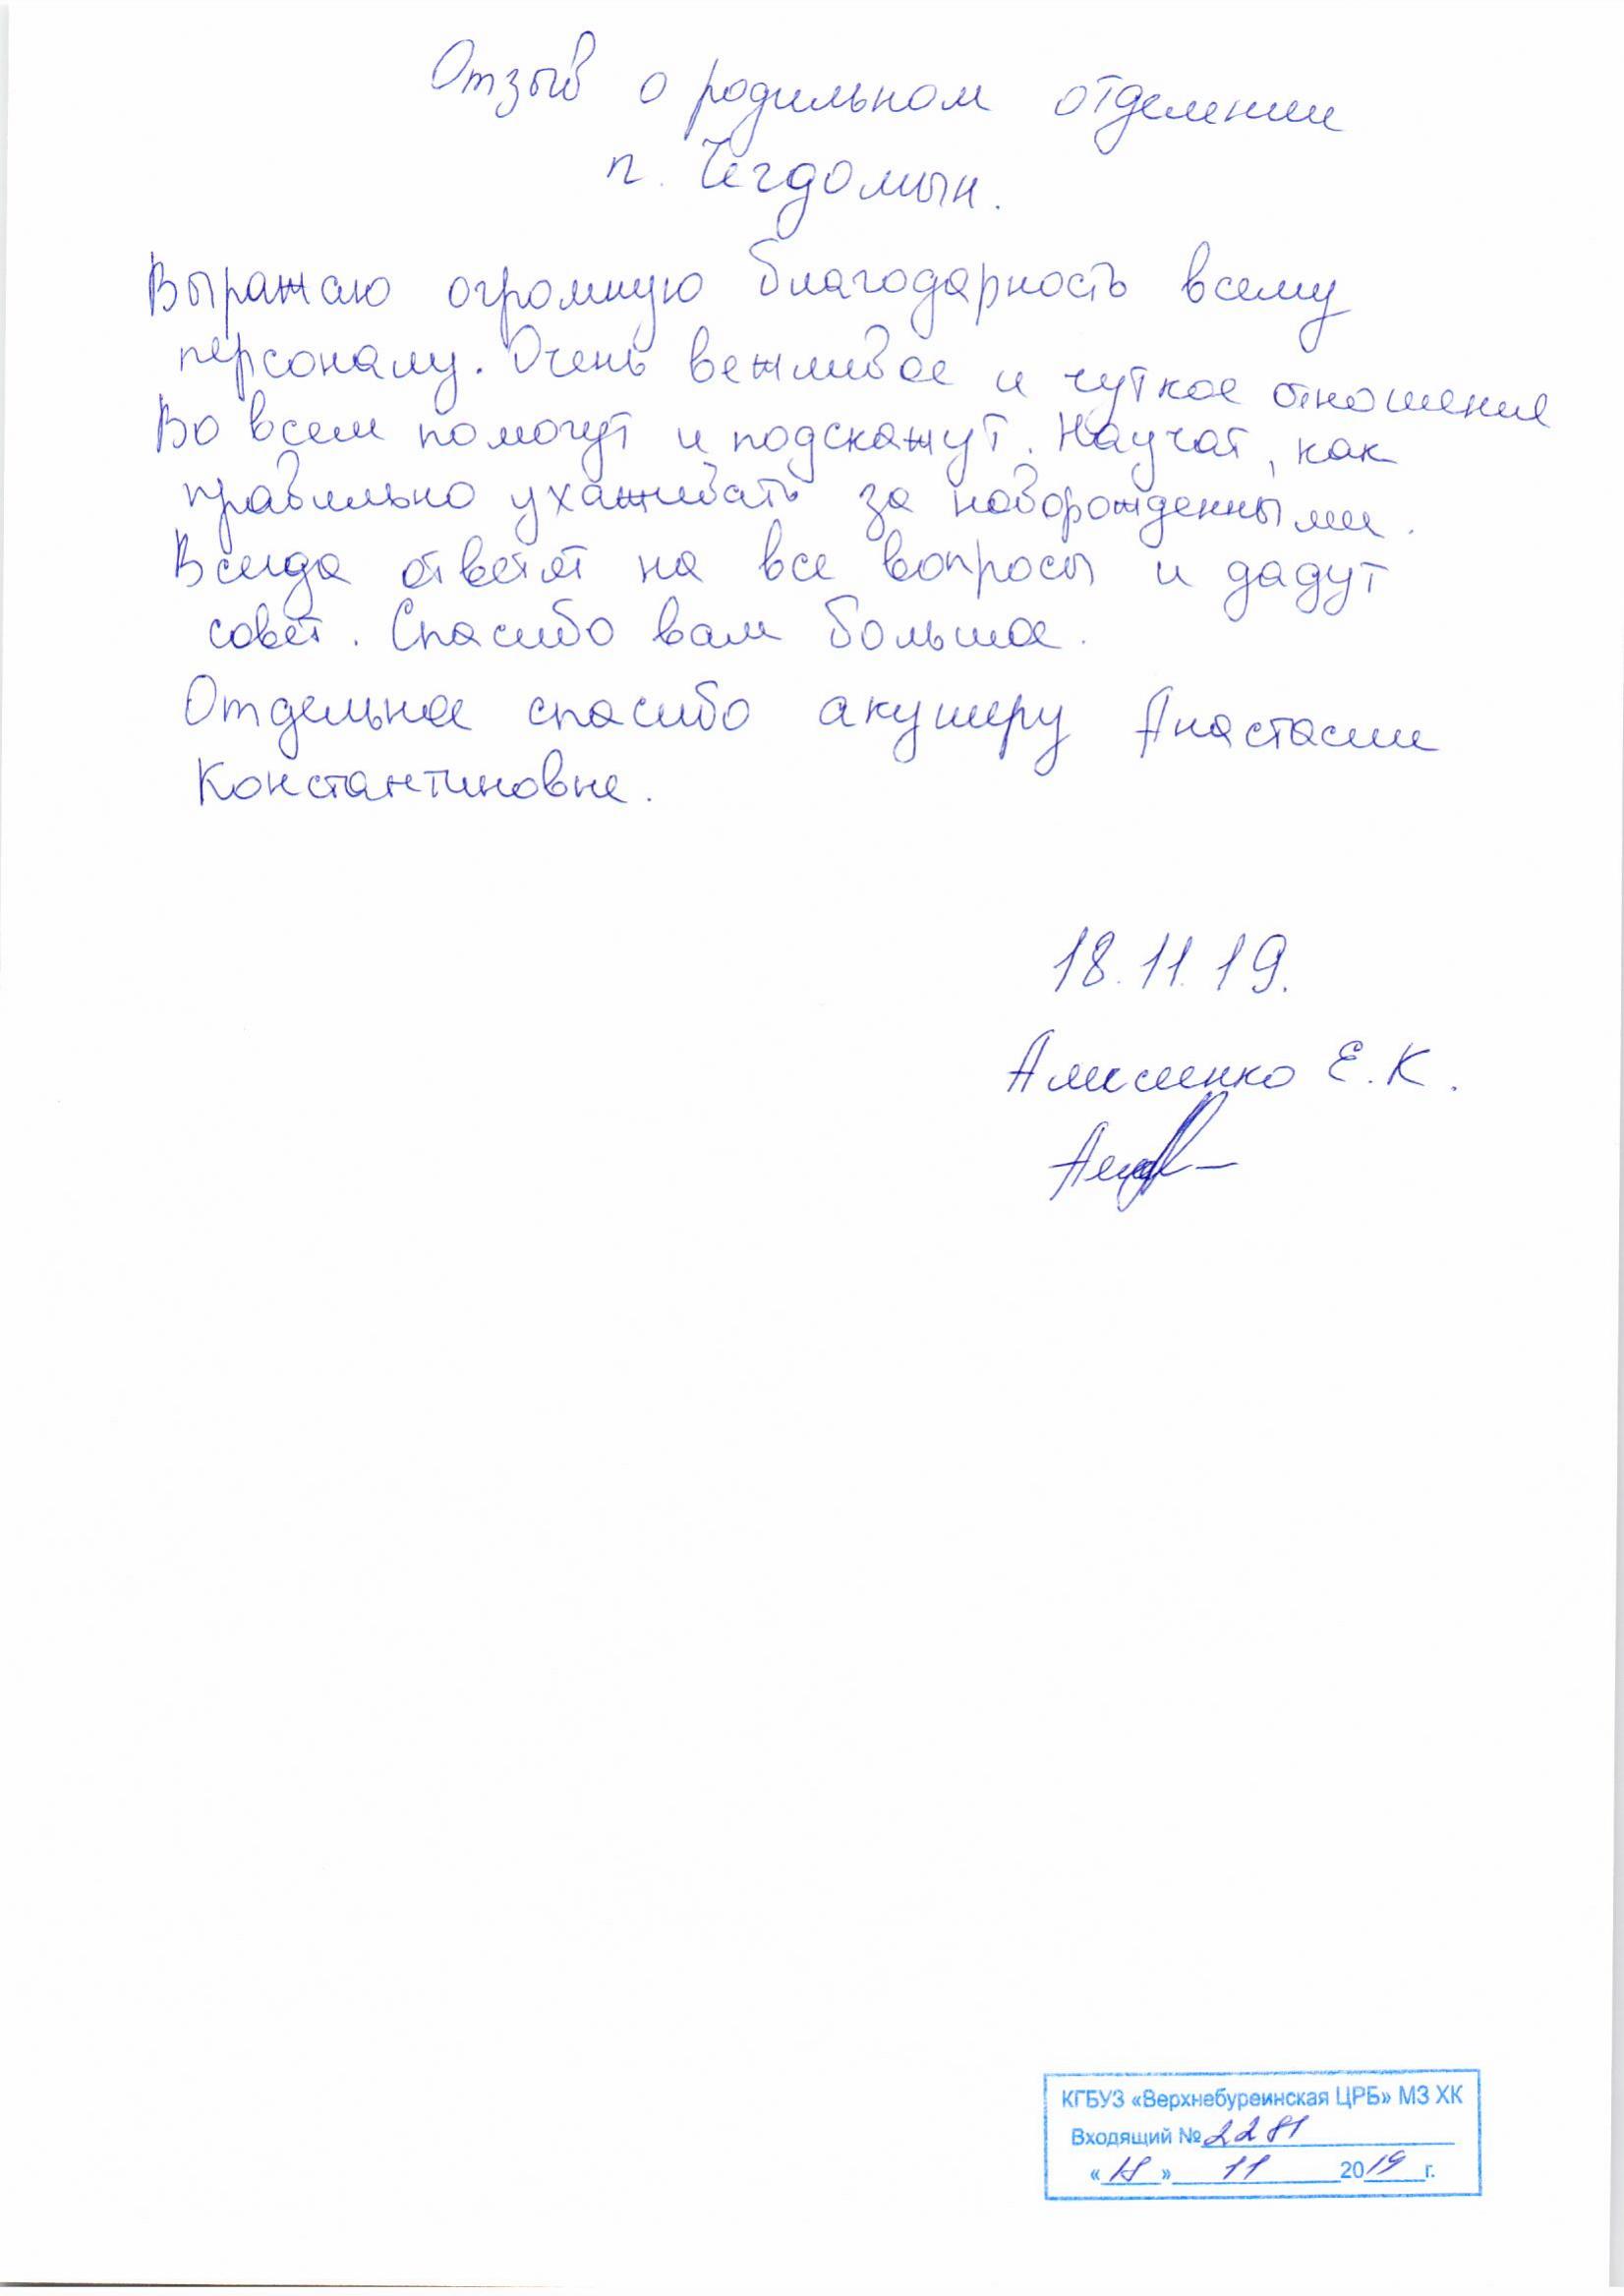 Отзыв о родильном отделении
п. Чегдомын.
Выражаю огромную благодарность всему
персоналу. Очень вежливое и чуткое отношение
Во всем помогут и подскажут. Научат, как
правильно ухаживать за новорожденными.
Всегда ответят на все вопросы и дадут
совет. Спасибо вам большое.
Отдельное спасибо акушеру Анастасии
Константиновне.
18.11.19.
Е.К.
КГБУЗ «Верхнебуреинская ЦРБ» МЗ ХК
Входящий № 2281
«18» 11 2019 г.